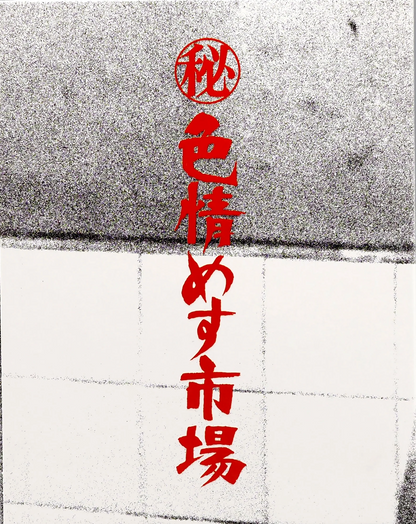 ㊙色情めす市場